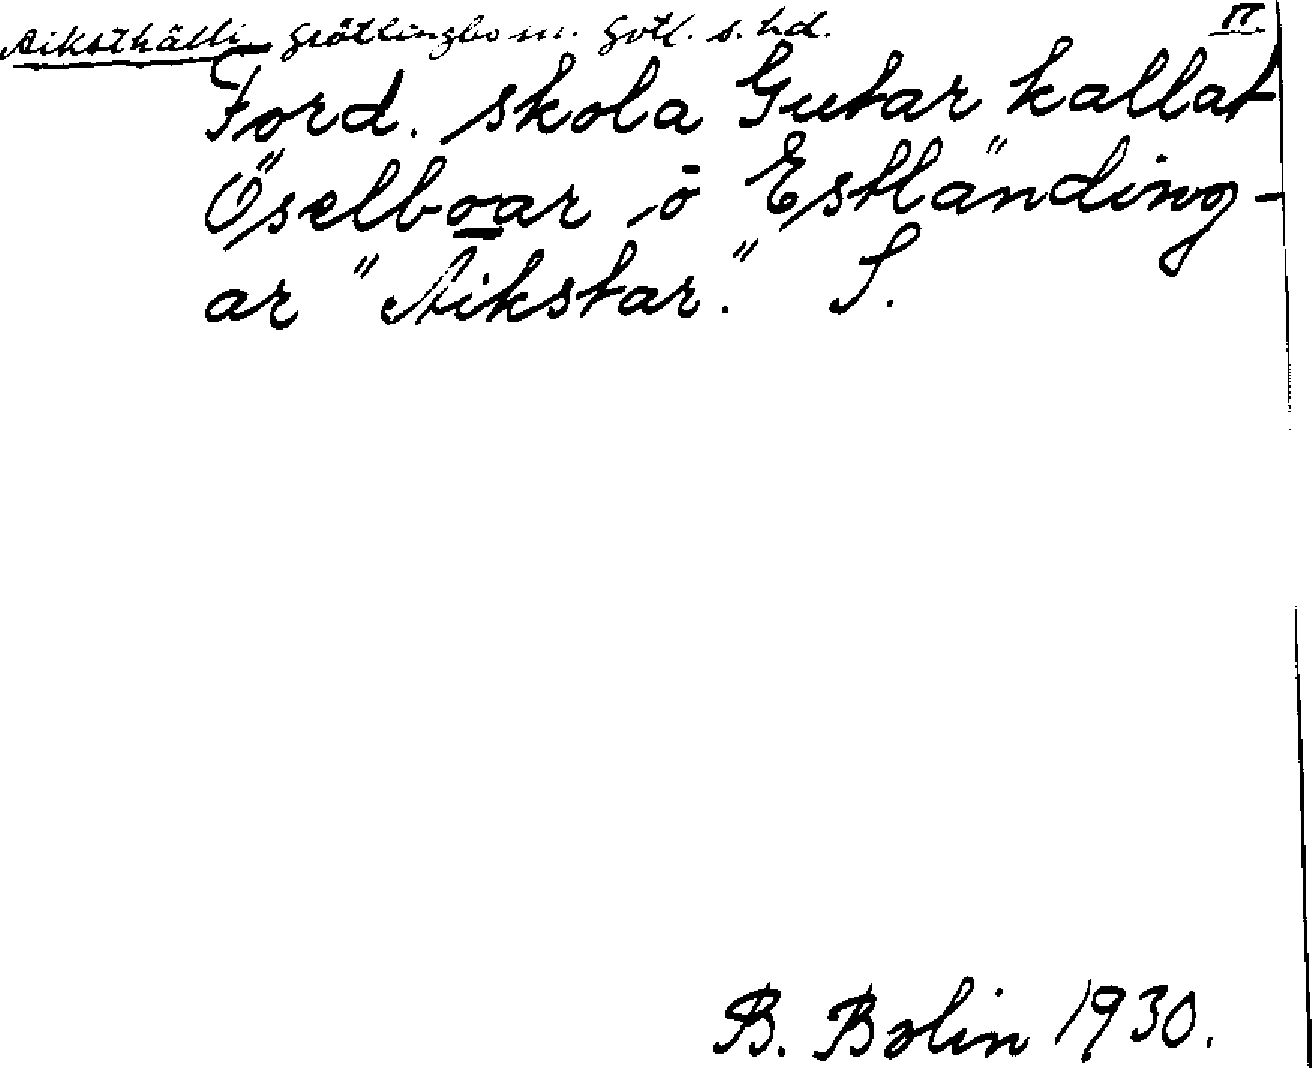 Aiksthälli Grötlingbo sn. Gotl. s. hd. II.
Förd. skola Gutar kallat
Öselboar ō Estländing-
ar "Aikstar." S.
B. Bolin 1930.